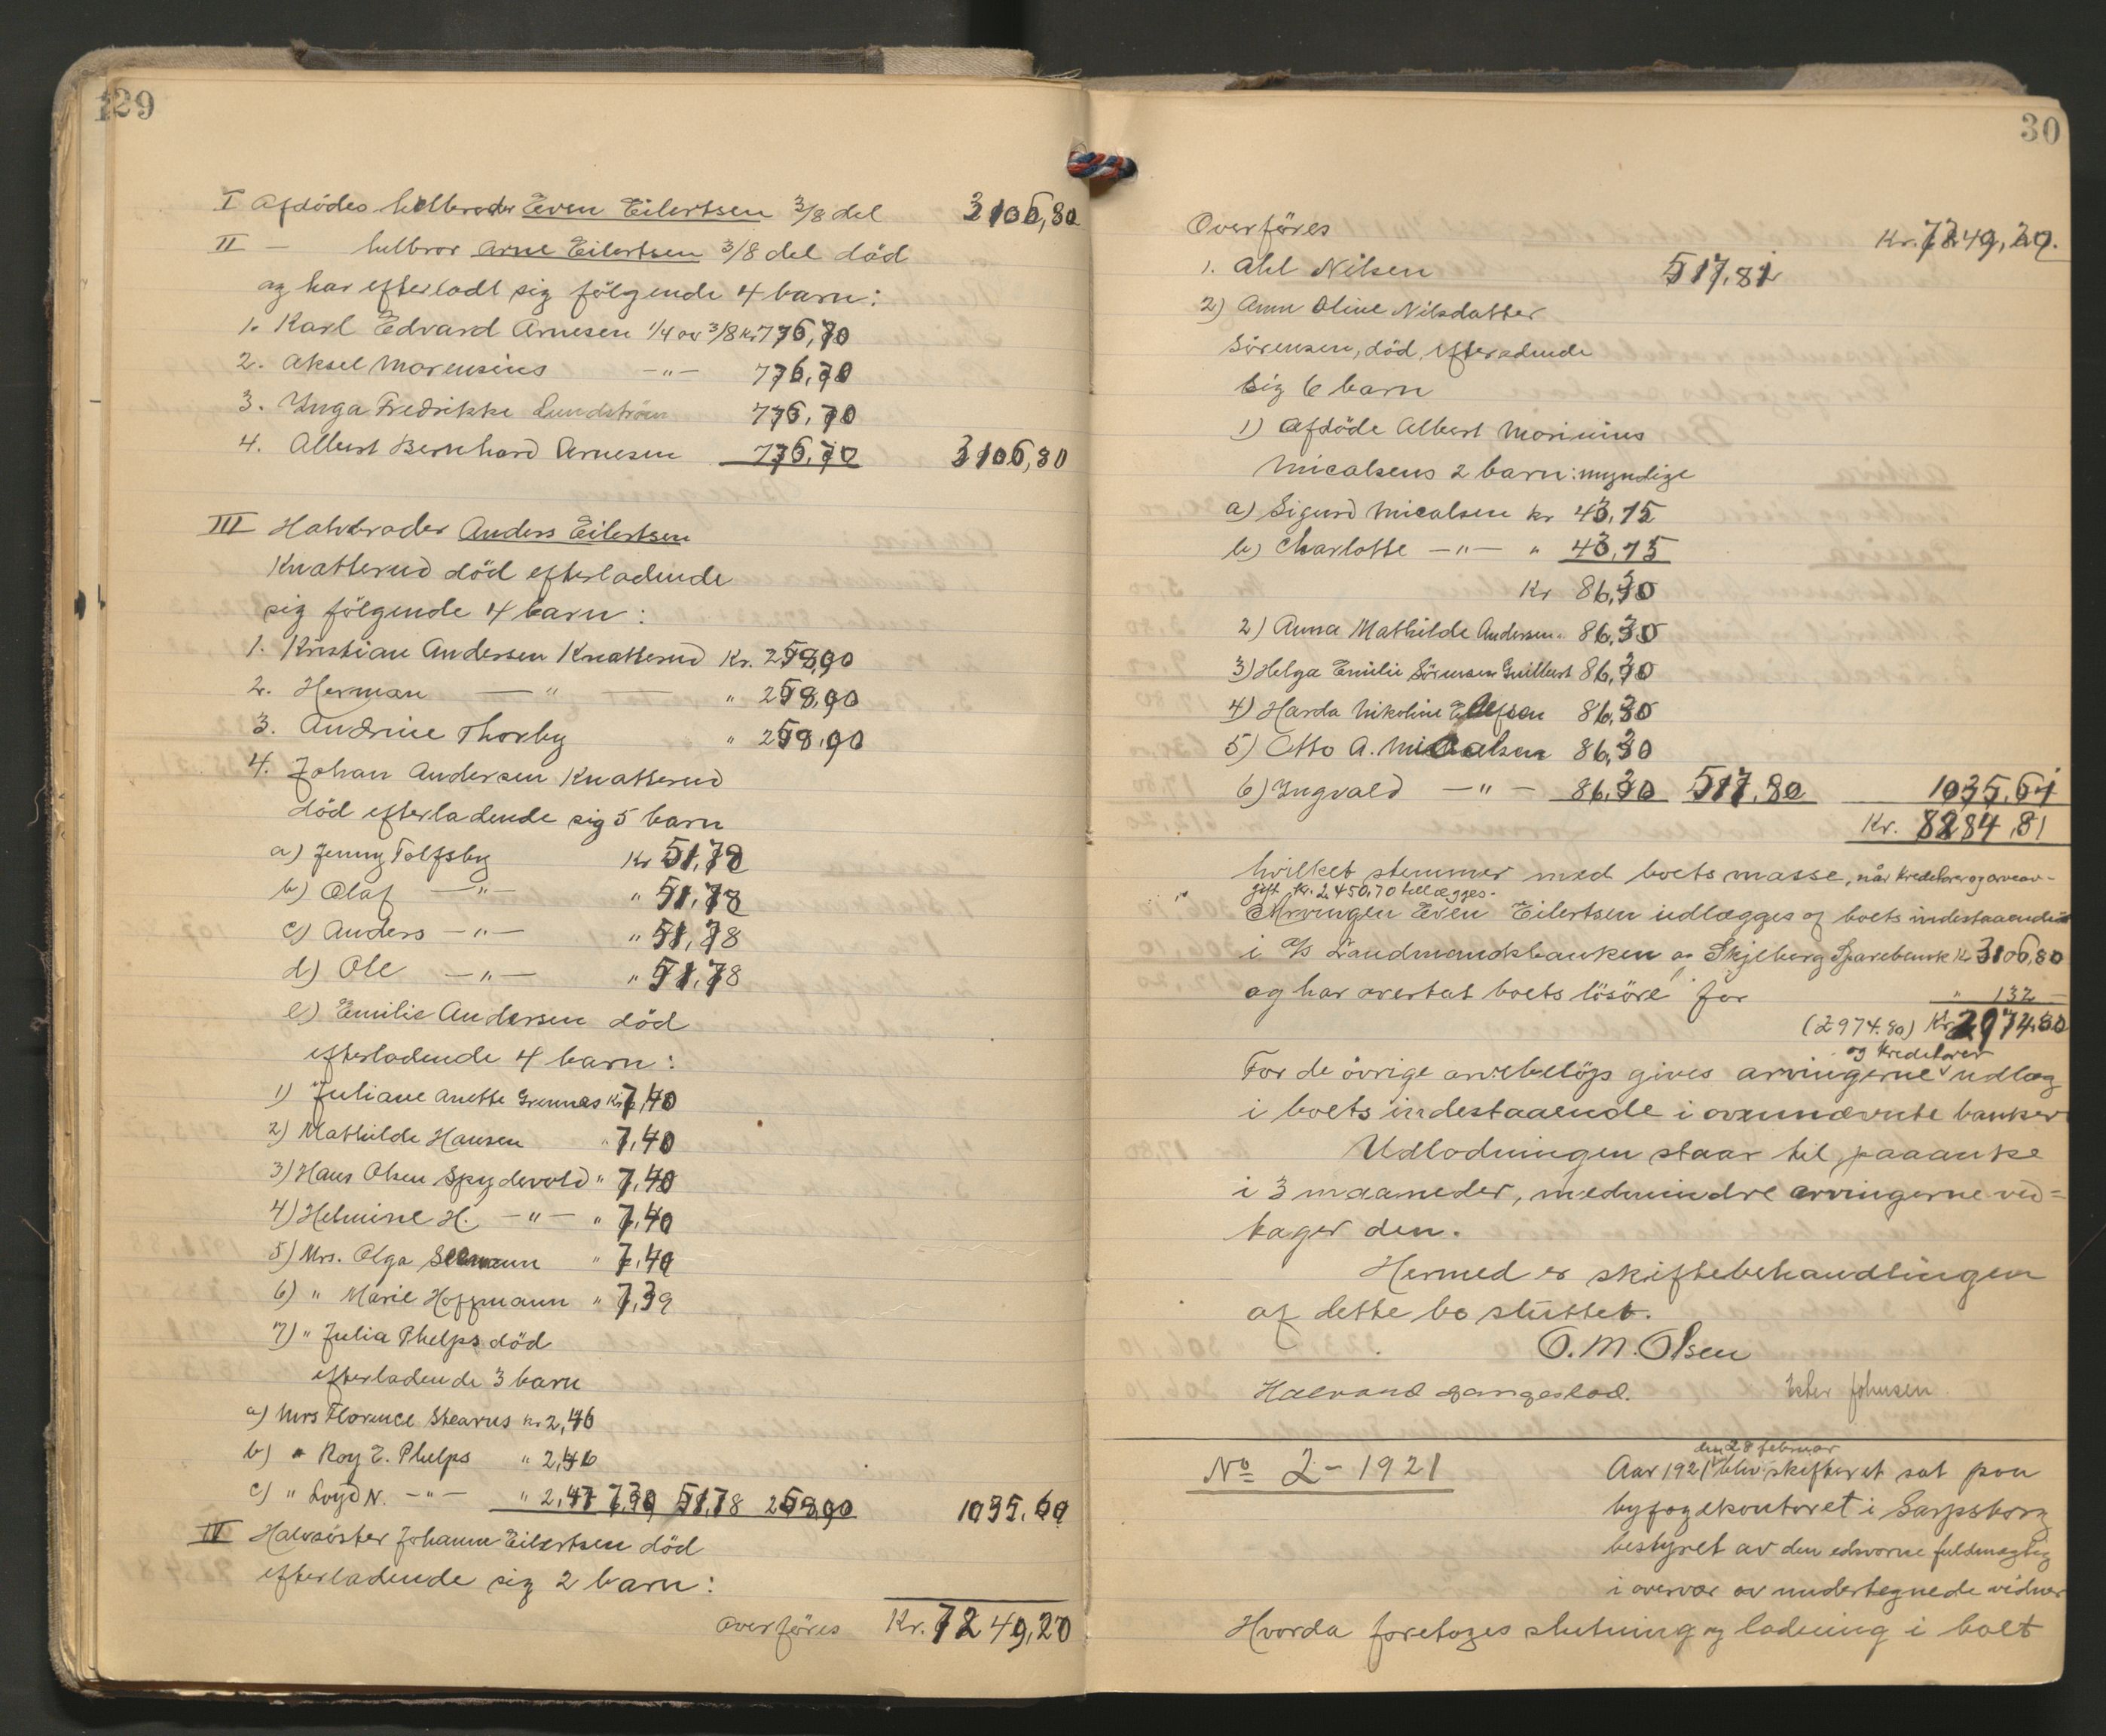 129
I Afdödes helbroder Even Eilertsen 3/8 del 3106,80
II — helbror Arne Eilertsen 3/8 del död
og har efterladt sig fölgende 4 barn:
1. Karl Edvard Arnesen 1/4 av 3/8 kr 776,70
2. Aksel Marensius —"— 776,70
3. Inga Fredrikke Lundström 776,70
4. Albert Bernhard Arnesen 776,70 3106,80
III Halvbroder Anders Eilertsen
Knatterud död efterladende
sig fölgende 4 barn:
1. Kristian Andersen Knatterud Kr. 258,90
2. Herman —"— " 258,90
3. Andrine Thorby " 258,90
4. Johan Andersen Knatterud
död efterladende sig 5 barn
a) Jenny Tolfsby Kr 51,78
b) Olaf —"— " 51,78
c) Anders —"— " 51,78
d) Ole —"— " 51,78
e) Emilie Andersen död
efterladende 4 barn:
1) Juliane Anette Grennes Kr 7,40
2) Mathilde Hansen " 7,40
3) Hans Olsen Spydevold " 7,40
4) Helmine H. —"— " 7,40
5) Mrs. Olga " 7,40
6) " Marie Hoffmann " 7,39
7) " Julia Phelps död
efterladende 3 barn
a) Mrs Florence Stearns kr 2,46
b) " Roy E. Phelps " 2,46
c) " Loyd N. —"— " 2,47 7,39 51,78 258,90 1035,60
IV Halvsöster Johanne Eilertsen död
efterladende sig 2 barn:
overföres Kr. 7249,20
30
Overföres Kr. 7249,20.
1. Ahl Nilsen 517,81
2) Ann Oline Nilsdatter
Sörensen, död, efterladende
sig 6 barn
1) Afdöde Albert Marinius
Micalsens 2 barn: myndige
a) Sigurd Micalsen kr 43,15
b) Charlotte —"— " 43,15
Kr 86,30
2) Anna Mathilde Andersen " 86,30
3) Helga Emilie Sörensen Guilbert 86,30
4) Harda Nikoline Elefsen 86,30
5) Otto A. Micalsen 86,30
6) Ingvald —"— 86,30 517,80 1035,61
Kr. 8284,81
hvilket stemmer med boets masse, når kreditorer og arveav-
gift kr. 2450,70 tillægges.
Arvingen Even Eilertsen udlægges af boets indestaaende
i A/S Landmandsbanken og Skjeberg Sparebank Kr 3106,80
og har overtat boets lösöre for " 132 —
(2974.80) Kr 2974.80
og kreditorer
For de övrige arvebelöp gives arvingerne udlæg
i boets indestaaende i ovennævnte banker
Udlodningen staar til paaanke
i 3 maaneder, medmindre arvingerne ved=
tager den.
Hermed er skiftebehandlingen
af dette bo sluttet.
O. M. Olsen
Halvand Ester Johnsen
No 2 - 1921
den 28 februar
Aar 1921 blev skifteret sat paa
byfogdkontoret i Sarpsborg
bestyret av den edsvorne fuldmægtig
i overvær av undertegnede vidner
Hvorda foretoges slutning og lodning i boet